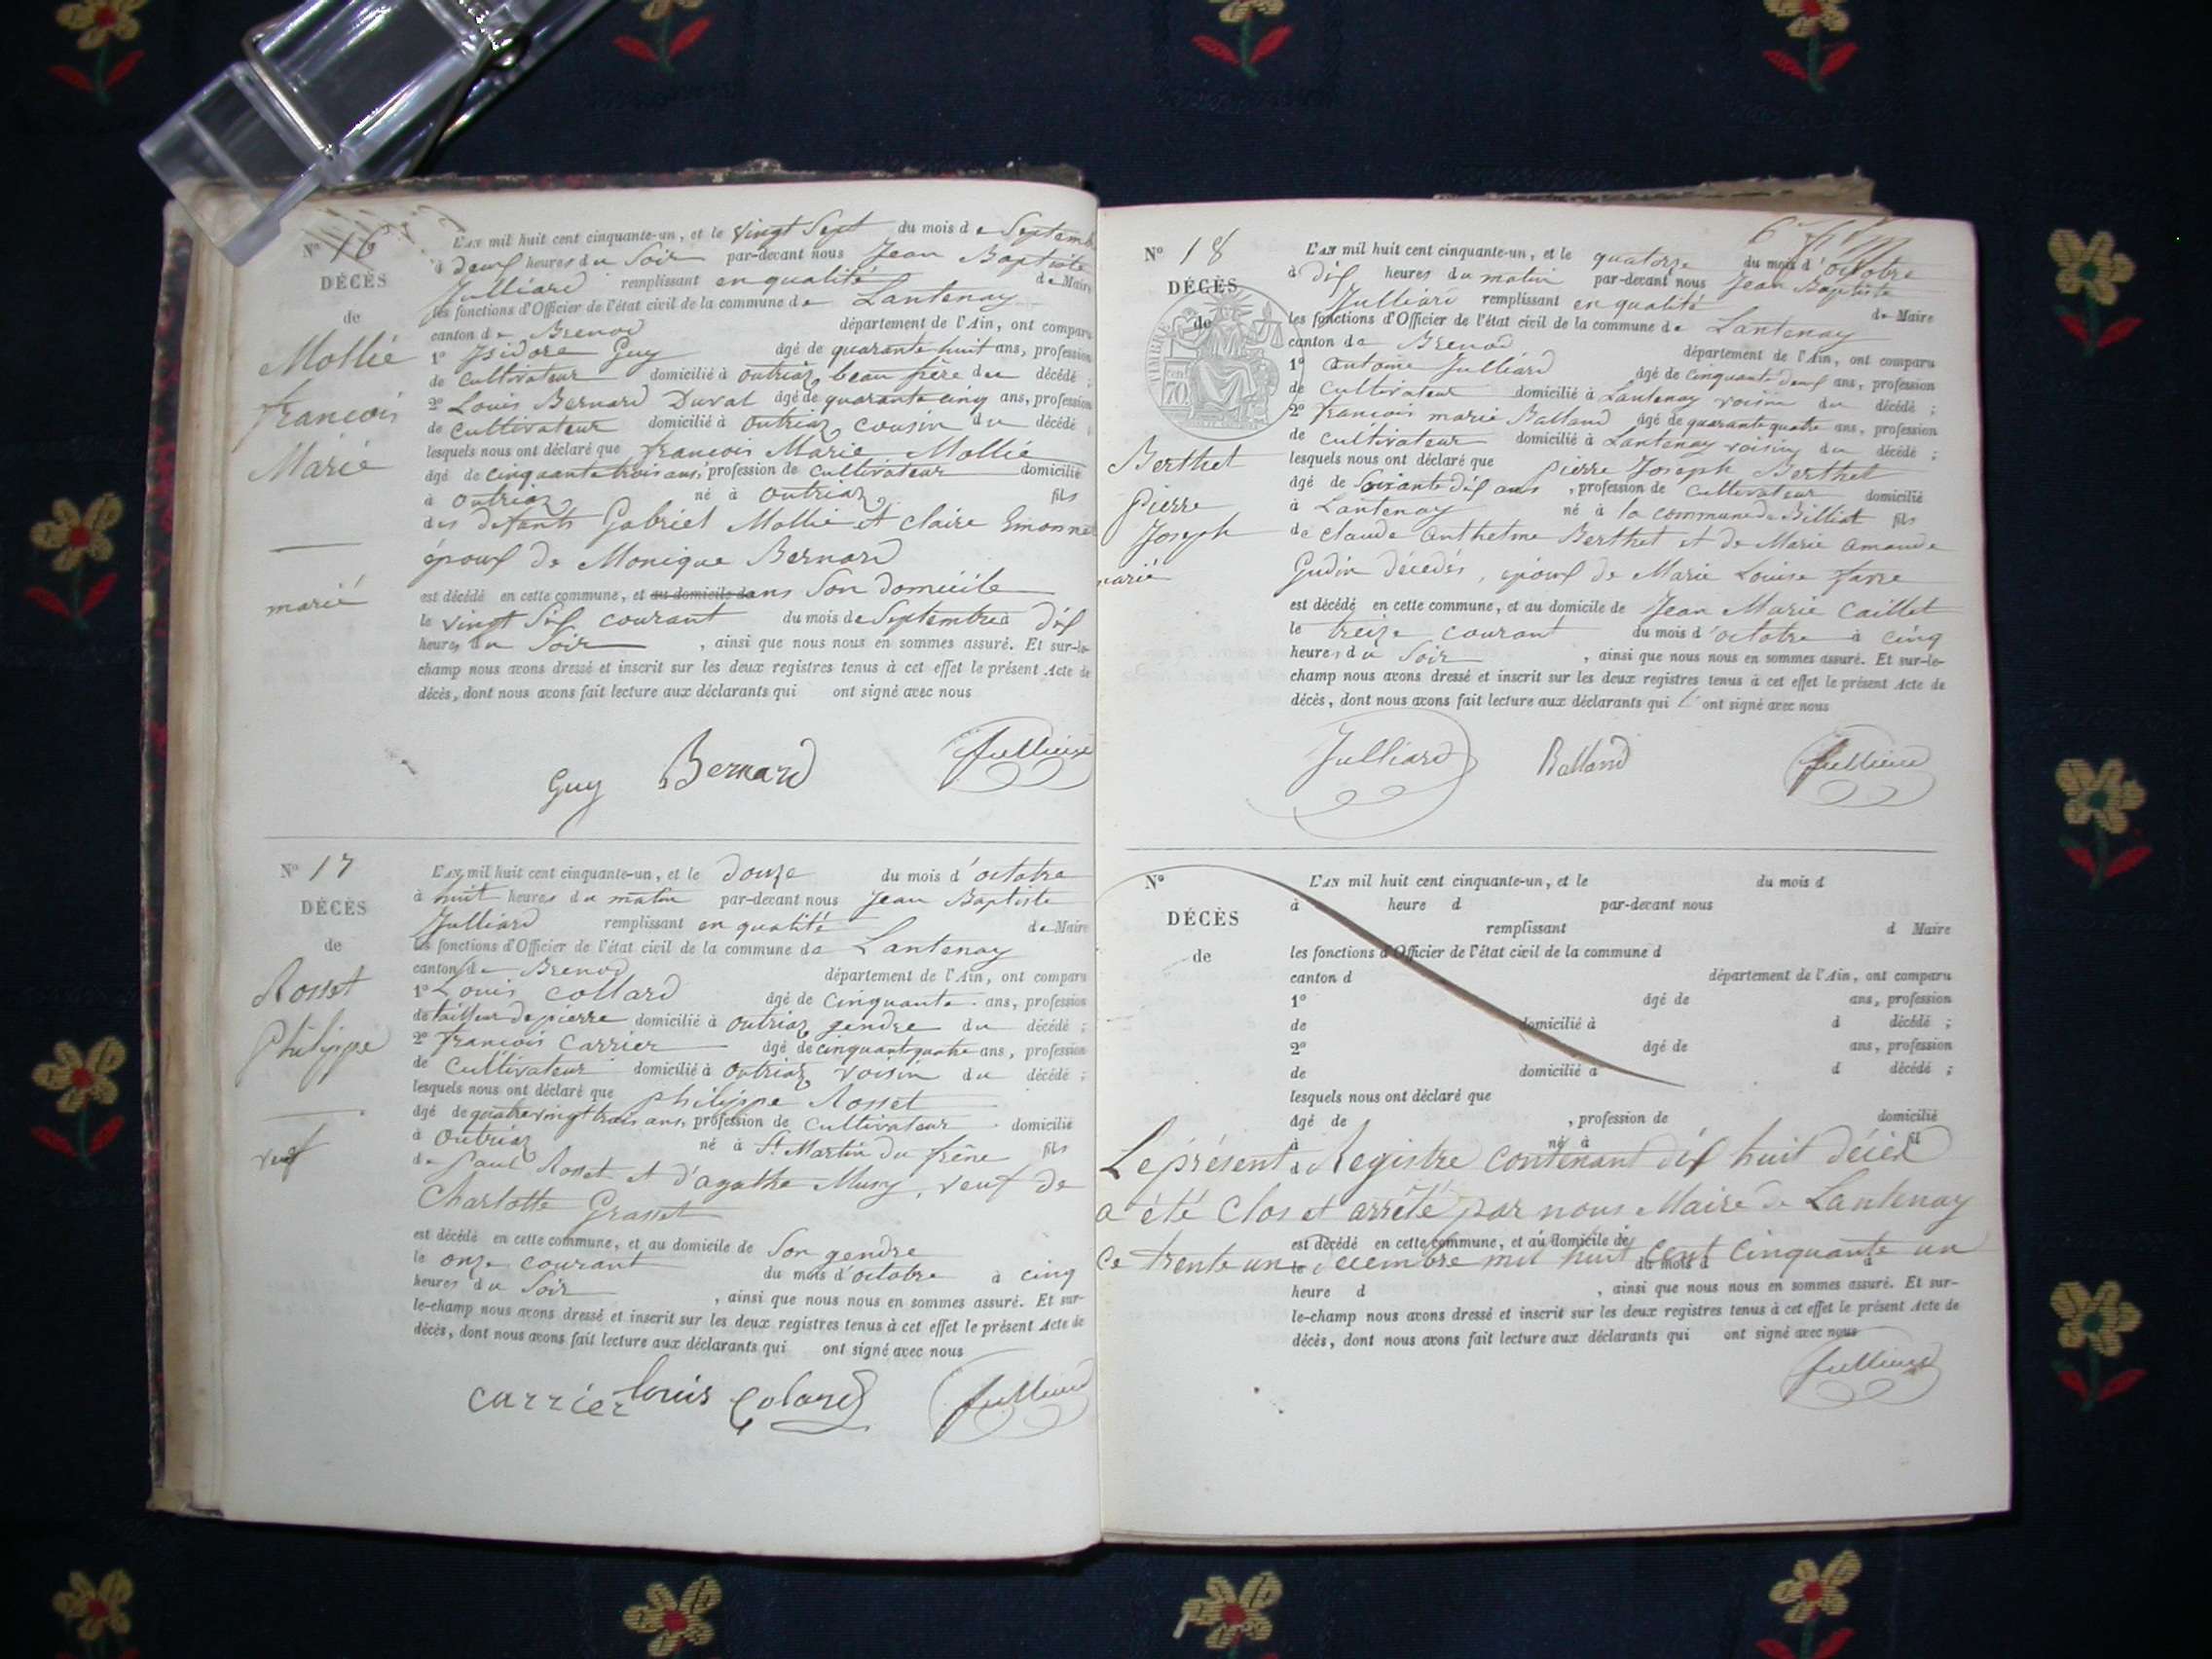 N° 16
DÉCÈS
de
Mollié
francois
Marie
marié
L'AN mil huit cent cinquante-un, et le vingt Sept du mois de Septemb
à deux heures du Soir par-devant nous Jean Baptiste
Julliard remplissant en qualité de Maire
les fonctions d'Officier de l'état civil de la commune de Lantenay
canton de Brenod département de l'Ain, ont comparu
1° Isidore Guy âgé de quarante huit ans, profession
de cultivateur domicilié à Outriaz beau frère du décédé ;
2° Louis Bernard Duval âgé de quarante cinq ans, profession
de cultivateur domicilié à Outriaz cousin du décédé ;
lesquels nous ont déclaré que francois Marie Mollié
âgé de cinquante trois ans, profession de cultivateur domicilié
à Outriaz né à Outriaz fils
des défunts Gabriel Mollié et Claire Emonne
époux de Monique Bernard
est décédé en cette commune, et au domicile dans Son domicile
le vingt Six courant du mois de Septembre à dix
heures du Soir , ainsi que nous nous en sommes assuré. Et sur-le-
champ nous avons dressé et inscrit sur les deux registres tenus à cet effet le présent Acte de
décès, dont nous avons fait lecture aux déclarants qui ont signé avec nous
Guy Bernard Julliard
N° 17
DÉCÈS
de
Rosset
Philippe
veuf
L'AN mil huit cent cinquante-un, et le douze du mois d'octobre
à huit heures du matin par-devant nous Jean Baptiste
Julliard remplissant en qualité de Maire
les fonctions d'Officier de l'état civil de la commune de Lantenay
canton de Brenod département de l'Ain, ont comparu
1° Louis Collard âgé de cinquante ans, profession
de tailleur de pierre domicilié à Outriaz gendre du décédé ;
2° francois Carrier âgé de cinquante quatre ans, profession
de Cultivateur domicilié à Outriaz voisin du décédé ;
lesquels nous ont déclaré que philippe Rosset
âgé de quatre vingt trois ans, profession de cultivateur domicilié
à Outriaz né à St Martin du frêne fils
de Paul Rosset et d'agathe Muny, veuf de
Charlotte Grasset
est décédé en cette commune, et au domicile de Son gendre
le onze courant du mois d'octobre à cinq
heures du Soir , ainsi que nous nous en sommes assuré. Et sur-
le-champ nous avons dressé et inscrit sur les deux registres tenus à cet effet le présent Acte de
décès, dont nous avons fait lecture aux déclarants qui ont signé avec nous
carrier louis Colard Julliard
N° 18
DÉCÈS
de
TIMBRE
70
Berthet
pierre
Joseph
marié
L'AN mil huit cent cinquante-un, et le quatorze du mois d'octobre
à dix heures du matin par-devant nous Jean Baptiste
Julliard remplissant en qualité de Maire
les fonctions d'Officier de l'état civil de la commune de Lantenay
canton de Brenod département de l'Ain, ont comparu
1° antoine Julliard âgé de cinquante deux ans, profession
de cultivateur domicilié à Lantenay voisin du décédé ;
2° francois marie Balland âgé de quarante quatre ans, profession
de cultivateur domicilié à Lantenay voisin du décédé ;
lesquels nous ont déclaré que pierre Joseph Berthet
âgé de Soixante dix ans , profession de cultivateur domicilié
à Lantenay né à la commune de Billiat fils
de claude anthelme Berthet et de Marie amande
Gudin décédés, époux de Marie Louise favre
est décédé en cette commune, et au domicile de Jean Marie Caillet
le treize courant du mois d'octobre à cinq
heures du Soir , ainsi que nous nous en sommes assuré. Et sur-le-
champ nous avons dressé et inscrit sur les deux registres tenus à cet effet le présent Acte de
décès, dont nous avons fait lecture aux déclarants qui ont signé avec nous
Julliard Balland Julliard
N°
DÉCÈS
de
L'AN mil huit cent cinquante-un, et le du mois d
à heure d par-devant nous
remplissant d Maire
les fonctions d'Officier de l'état civil de la commune d
canton d département de l'Ain, ont comparu
1° âgé de ans, profession
de domicilié à d décédé ;
2° âgé de ans, profession
de domicilié à d décédé ;
lesquels nous ont déclaré que
âgé de , profession de domicilié
à né à fil
d
Le présent Registre contenant dix huit décès
a été Clos et arrêté par nous Maire de Lantenay
est décédé en cette commune, et au domicile de
ce trente un Decembre mil huit cent cinquante un
le du mois d à
heure d , ainsi que nous nous en sommes assuré. Et sur-
le-champ nous avons dressé et inscrit sur les deux registres tenus à cet effet le présent Acte de
décès, dont nous avons fait lecture aux déclarants qui ont signé avec nous
Julliard